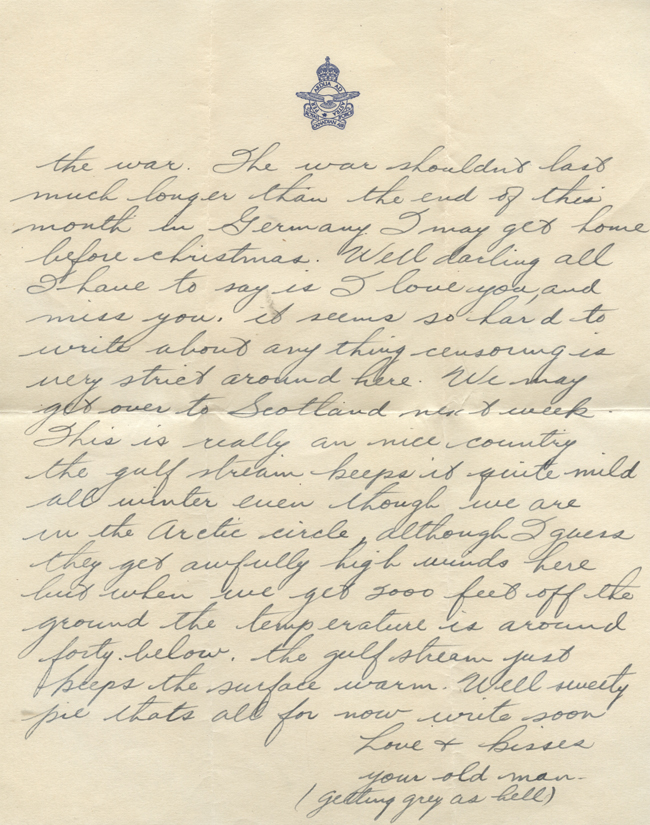 PER ARDUA AD ASTRA
ROYAL CANADIAN AIR FORCE
the war. The war shouldnt last
much longer than the end of this
month in Germany. I may get home
before christmas. Well darling all
I have to say is I love you, and
miss you. it seems so hard to
write about any thing censoring is
very strict around here. We may
get over to Scotland next week.
This is really an nice country
the gulf stream keeps it quite mild
all winter even though we are
in the Arctic circle, although I guess
they get awfully high winds here
but when we get 2000 feet off the
ground the temperature is around
forty below. the gulf stream just
keeps the surface warm. Well sweety
pie thats all for now write soon
Love & Kisses
your old man-
(getting grey as hell)